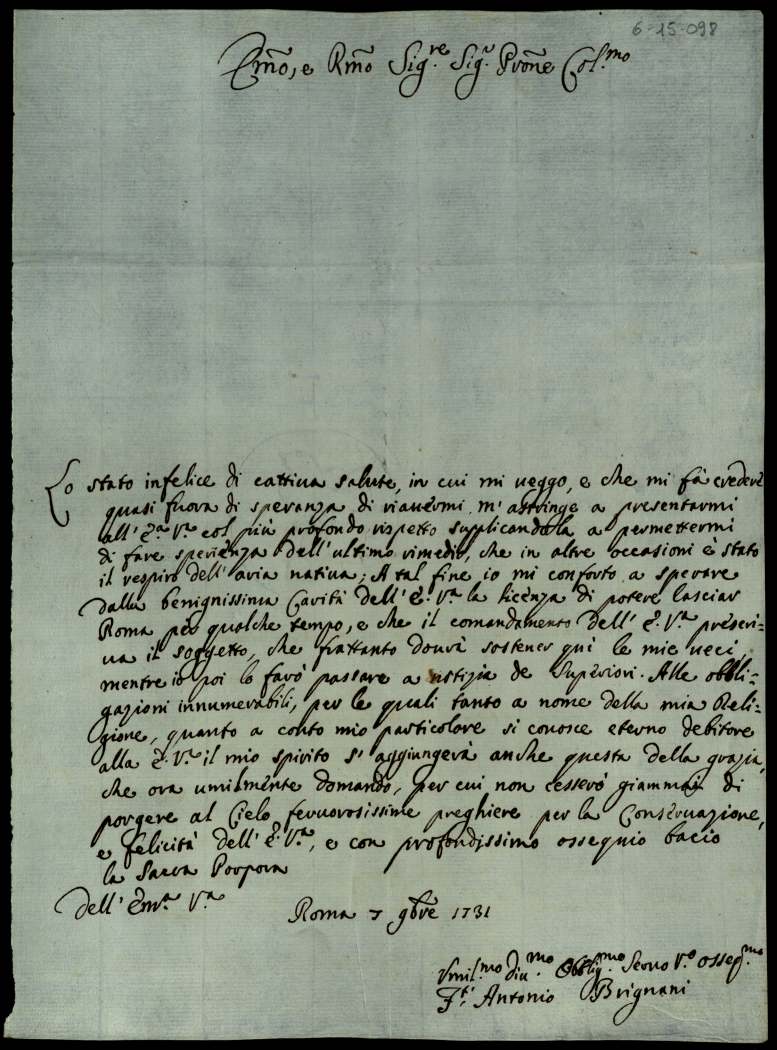 6-15-098
Em̃o, e Rm̃o Sig.re Sig.r Pron̄e Col.mo
Lo stato infelice di cattiua salute, in cui mi ueggo, e che mi fà credere
quasi fuora di speranza di riauermi, m'astringe a presentarmi
all'E.a V.ra col più profondo rispetto supplicandola a permettermi
di fare sperienza dell'ultimo rimedio, che in altre occasioni è stato
il respiro dell'aria natiua; A tal fine io mi conforto a sperare
dalla benignissima Carità dell'E. V.ra la licenza di potere lasciar
Roma per qualche tempo, e che il comandamento dell'E. V.ra prescri-
ua il soggetto, che frattanto dourà sostener quì le mie ueci,
mentre io poi lo farò passare a notizia de Superiori. Alle obbli-
gazioni innumerabili, per le quali tanto a nome della mia Reli-
gione, quanto a conto mio particolare si conosce eterno debitore
alla E. V.ra il mio spirito s'aggiungerà anche questa della grazia,
che ora umilmente domando, per cui non cesserò giammai di
porgere al Cielo feruorosissime preghiere per la Conseruazione,
e felicità dell'E. V.ra, e con profondissimo ossequio bacio
la Sacra Porpora
Dell'Em.a V.ra
Roma 7 9bre 1731
Vmil.mo Diu.mo Obblig.mo Seruo V.o osseq.mo
F.' Antonio Brignani